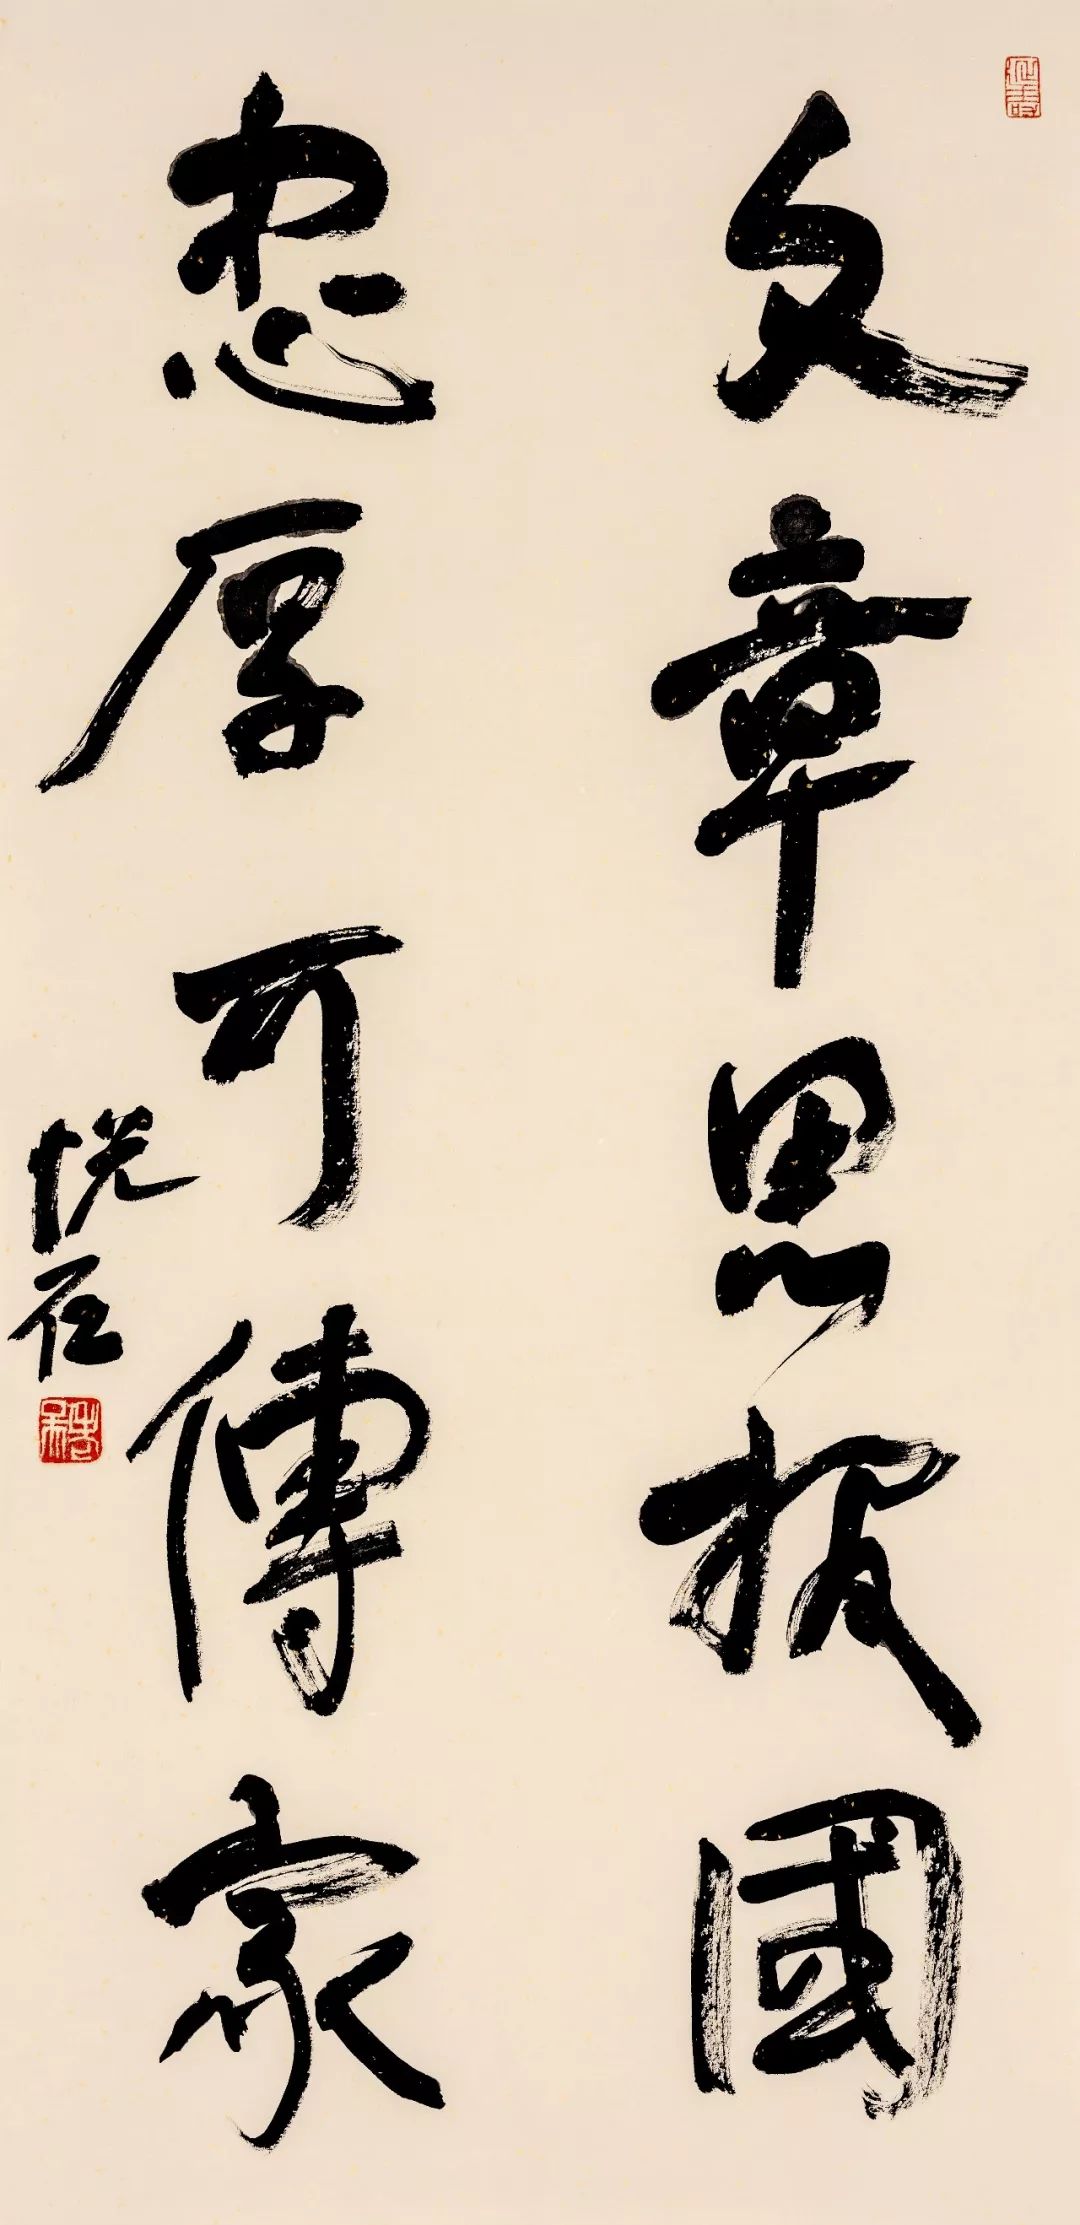 文章思报國
忠厚可傳家
悦石